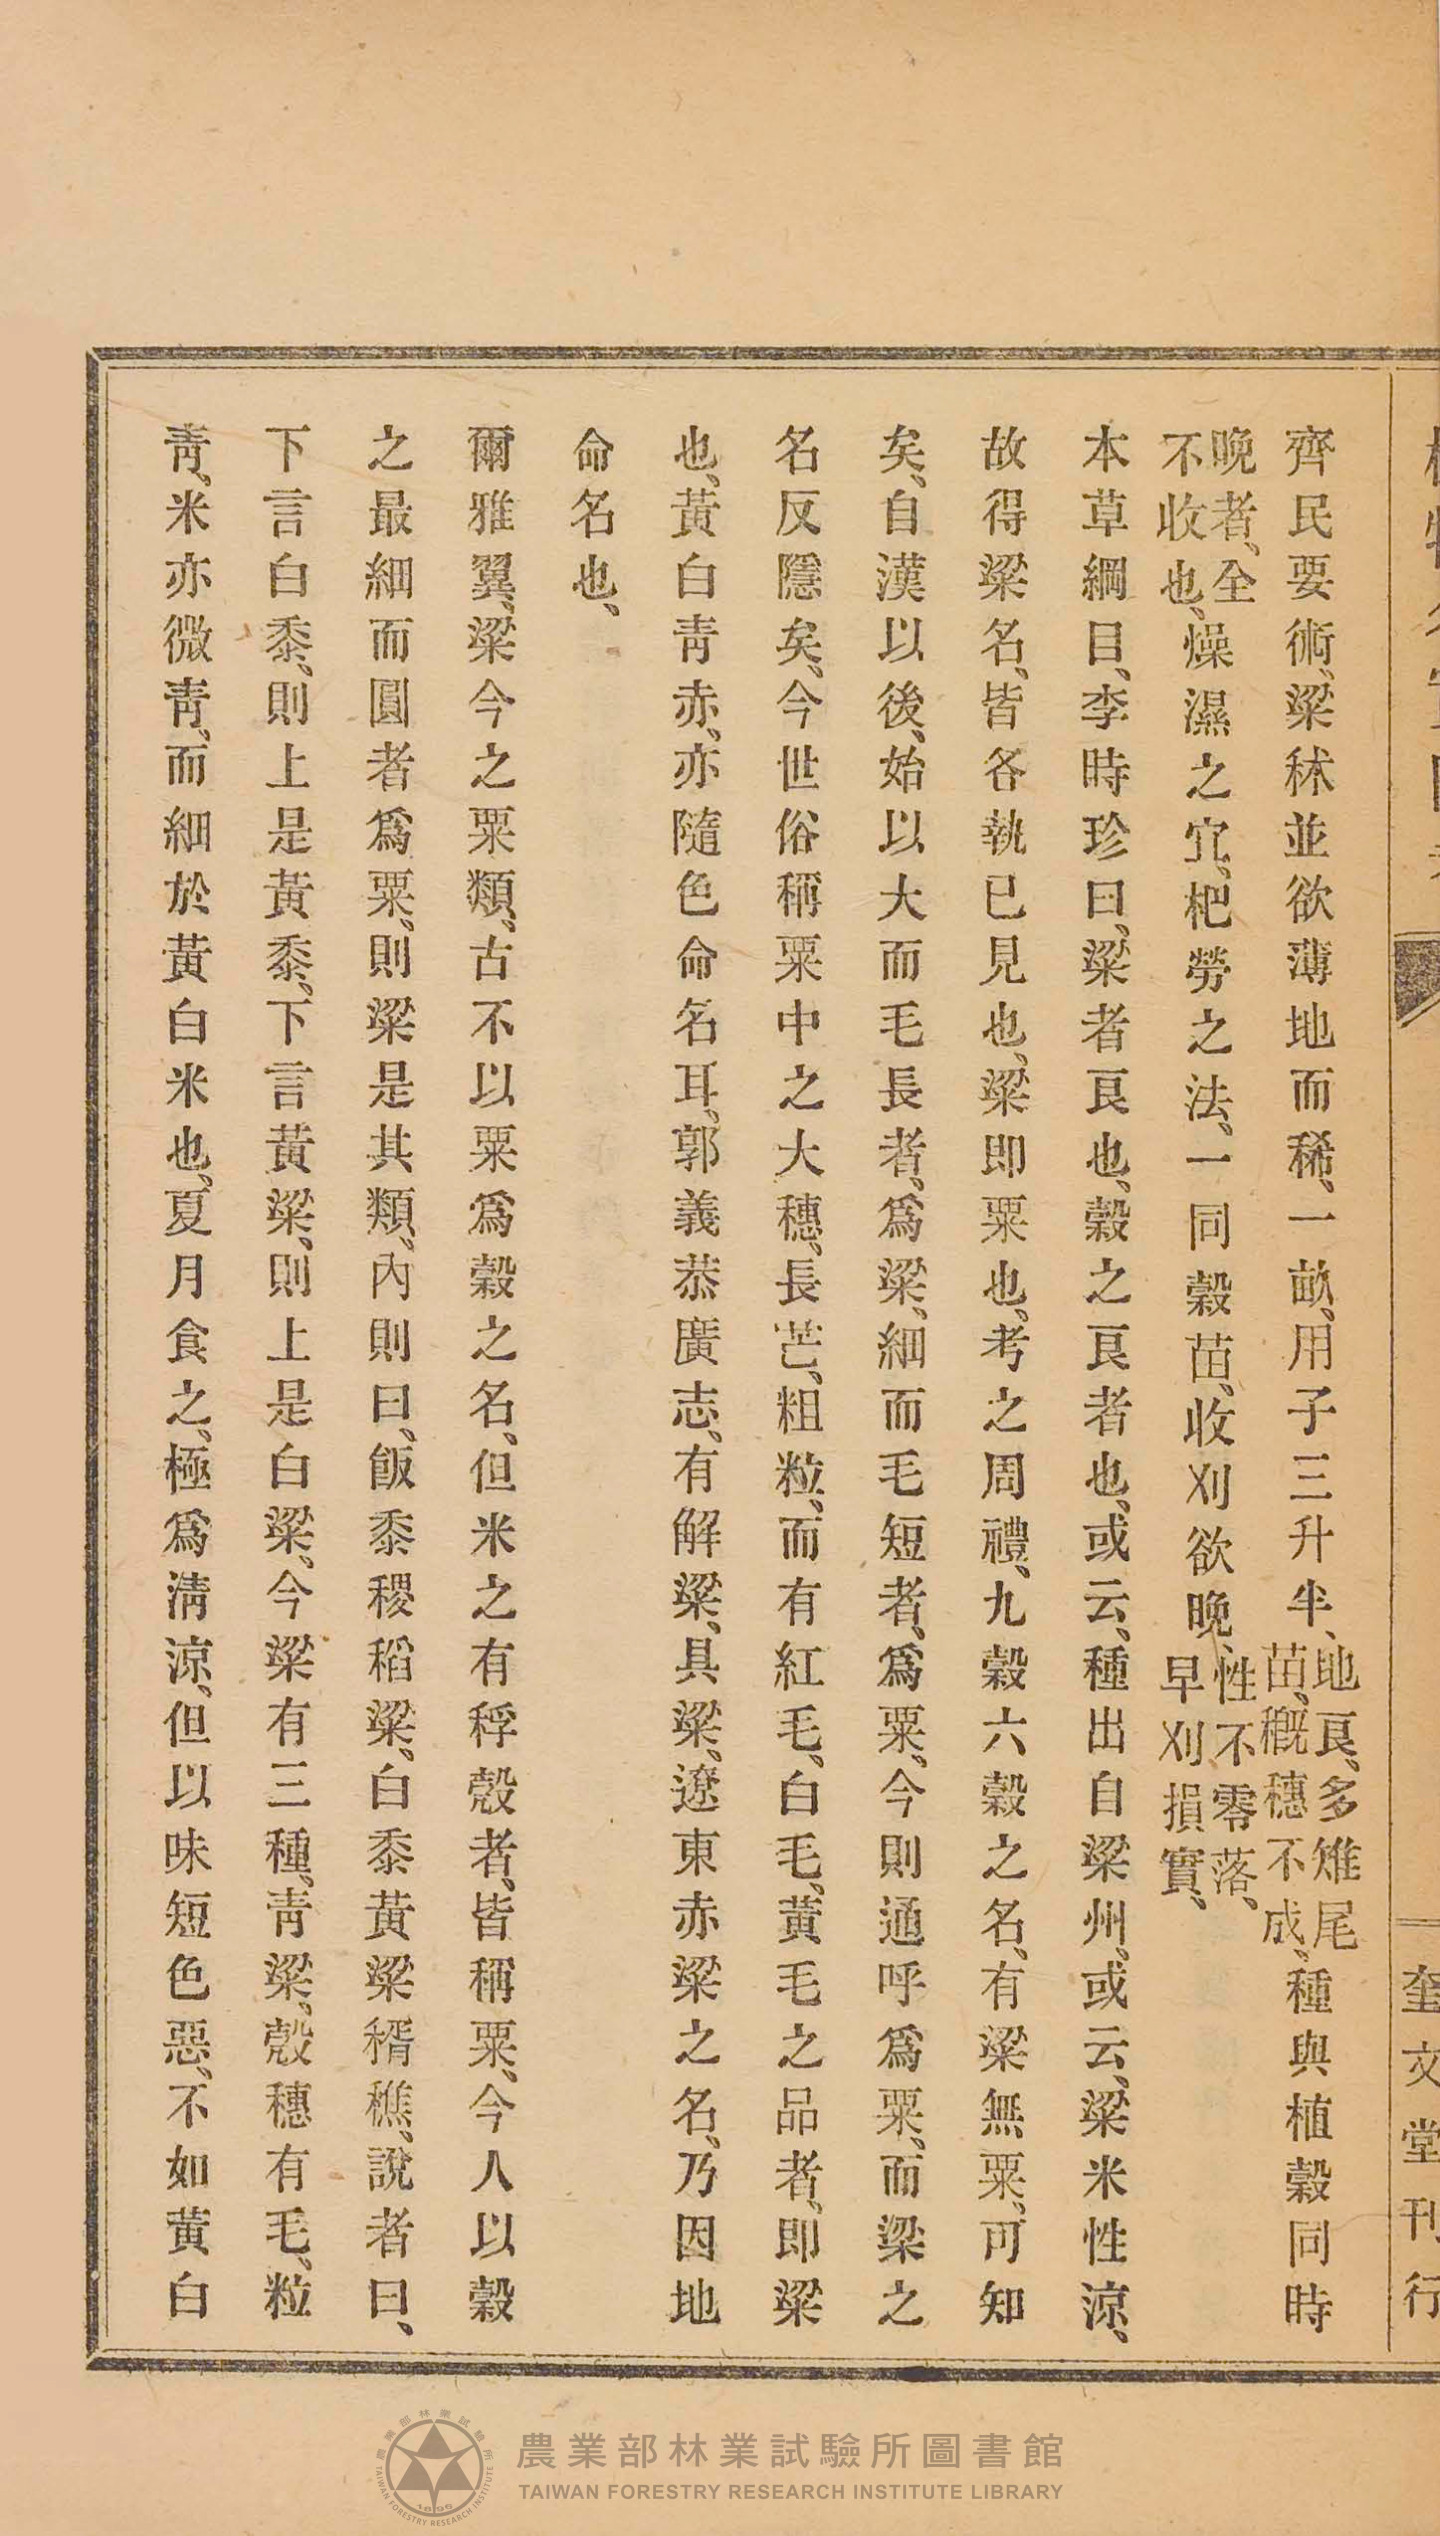 齊民要術、粱秫並欲薄地而稀、一畝、用子三升半、地良、多雉尾苗、穊穗不成、種與植穀同時
晚者、全不收也、燥濕之宜、杷勞之法、一同穀苗、收刈欲晚、性不零落、早刈損實、
本草綱目、李時珍曰、粱者良也、穀之良者也、或云、種出自梁州、或云、粱米性涼、
故得粱名、皆各執已見也、粱即粟也、考之周禮、九穀六穀之名、有粱無粟、可知
矣、自漢以後、始以大而毛長者、爲粱、細而毛短者、爲粟、今則通呼爲粟、而粱之
名反隱矣、今世俗稱粟中之大穗、長芒、粗粒、而有紅毛、白毛、黃毛之品者、即粱
也、黃白靑赤、亦隨色命名耳、郭義恭廣志、有解粱、具粱、遼東赤粱之名、乃因地
命名也、
爾雅翼、粱今之粟類、古不以粟爲穀之名、但米之有稃殼者、皆稱粟、今人以穀
之最細而圓者爲粟、則粱是其類、內則曰、飯黍稷稻粱、白黍黃粱稰穛、說者曰、
下言白黍、則上是黃黍、下言黃粱、則上是白粱、今粱有三種、靑粱、殼穗有毛、粒
靑、米亦微靑、而細於黃白米也、夏月食之、極爲淸涼、但以味短色惡、不如黃白
奎文堂刊行
農業部林業試驗所圖書館
TAIWAN FORESTRY RESEARCH INSTITUTE LIBRARY